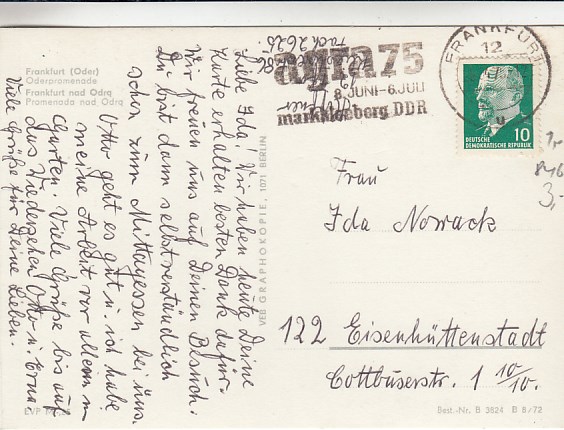 Frankfurt (Oder)
Oderpromenade
Frankfurt nad Odrą
Promenada nad Odrą
Liebe Ida! Wir haben heute Deine
Karte erhalten besten Dank dafür.
Wir freuen uns auf Deinen Besuch.
Du bist dann selbstverständlich
schon zum Mittagessen bei uns.
Otto geht es gut u. ich habe
meine Arbeit vor allem in
Garten. Viele Grüße bis auf
das Wiedersehen Otto u. Erna
Viele Grüße für Deine Lieben.
EVP M
VEB GRAPHOKOPIE, 1071 BERLIN
agra 75
8. JUNI-6. JULI
markkleeberg DDR
FRANKFURT
12
u
DEUTSCHE
DEMOKRATISCHE REPUBLIK
10
3,-
Frau
Ida Nowack
122 Eisenhüttenstadt
Cottbuserstr. 1 10/10.
Best.-Nr. B 3824 B 8/72